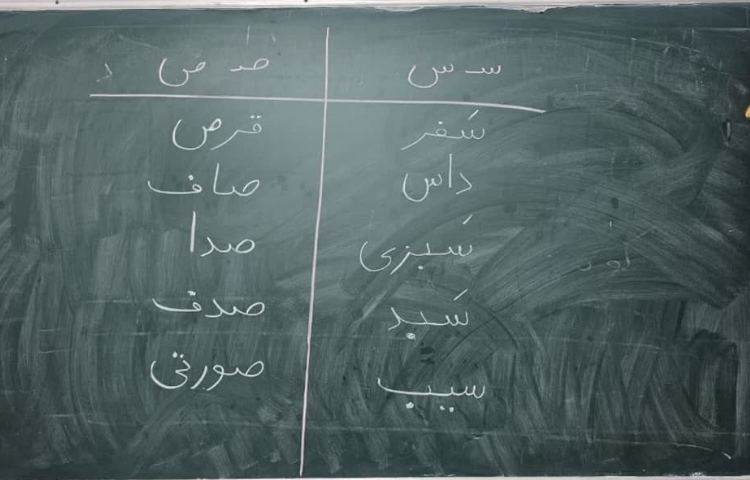 سـ س صـ ص
سَفر قرص
داس صاف
سَبزی صدا
سَبد صدف
سیب صورتی